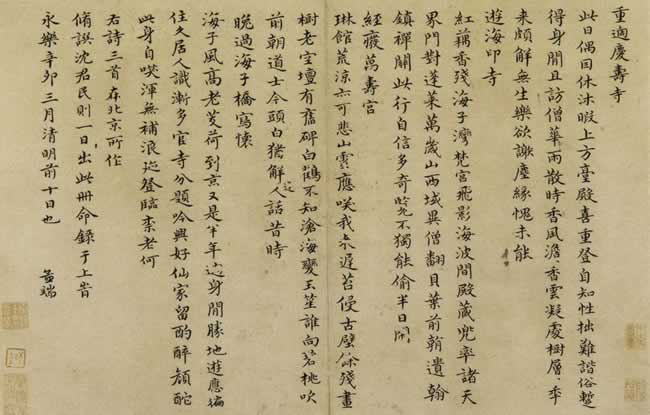 重過慶壽寺
此日偶因休沐暇上方臺殿喜重登自知性拙難諧俗暫
得身閒且訪僧華雨散時香風澹〻香雲凝處樹層〻年
来頗解無生樂欲謝塵緣愧未能
遊海印寺
紅藕香殘海子灣梵宮飛影海波間殿藏兜率諸天
界門對蓬萊萬歲山西域異僧翻貝葉前朝遺翰
鎮禪關此行自信多奇覽不獨能偷半日閒
經廢萬壽宮
琳館荒涼亦可悲山雲應笑我来遲苔侵古壁餘殘畫
樹老空壇有舊碑白鶴不知滄海變玉笙誰向碧桃吹
前朝道士今頭白猶解逢人話昔時
晚過海子橋寫懷
海子風高老芰荷到京又是半年過身閒勝地遊應徧
住久居人識漸多官寺分題吟興好仙家留酌醉顏酡
此身自笑渾無補浪迹登臨柰老何
右詩三首在北京所作
脩譔沈君民則一日出此冊命錄于上昔
永樂辛卯三月清明前十日也 孟端